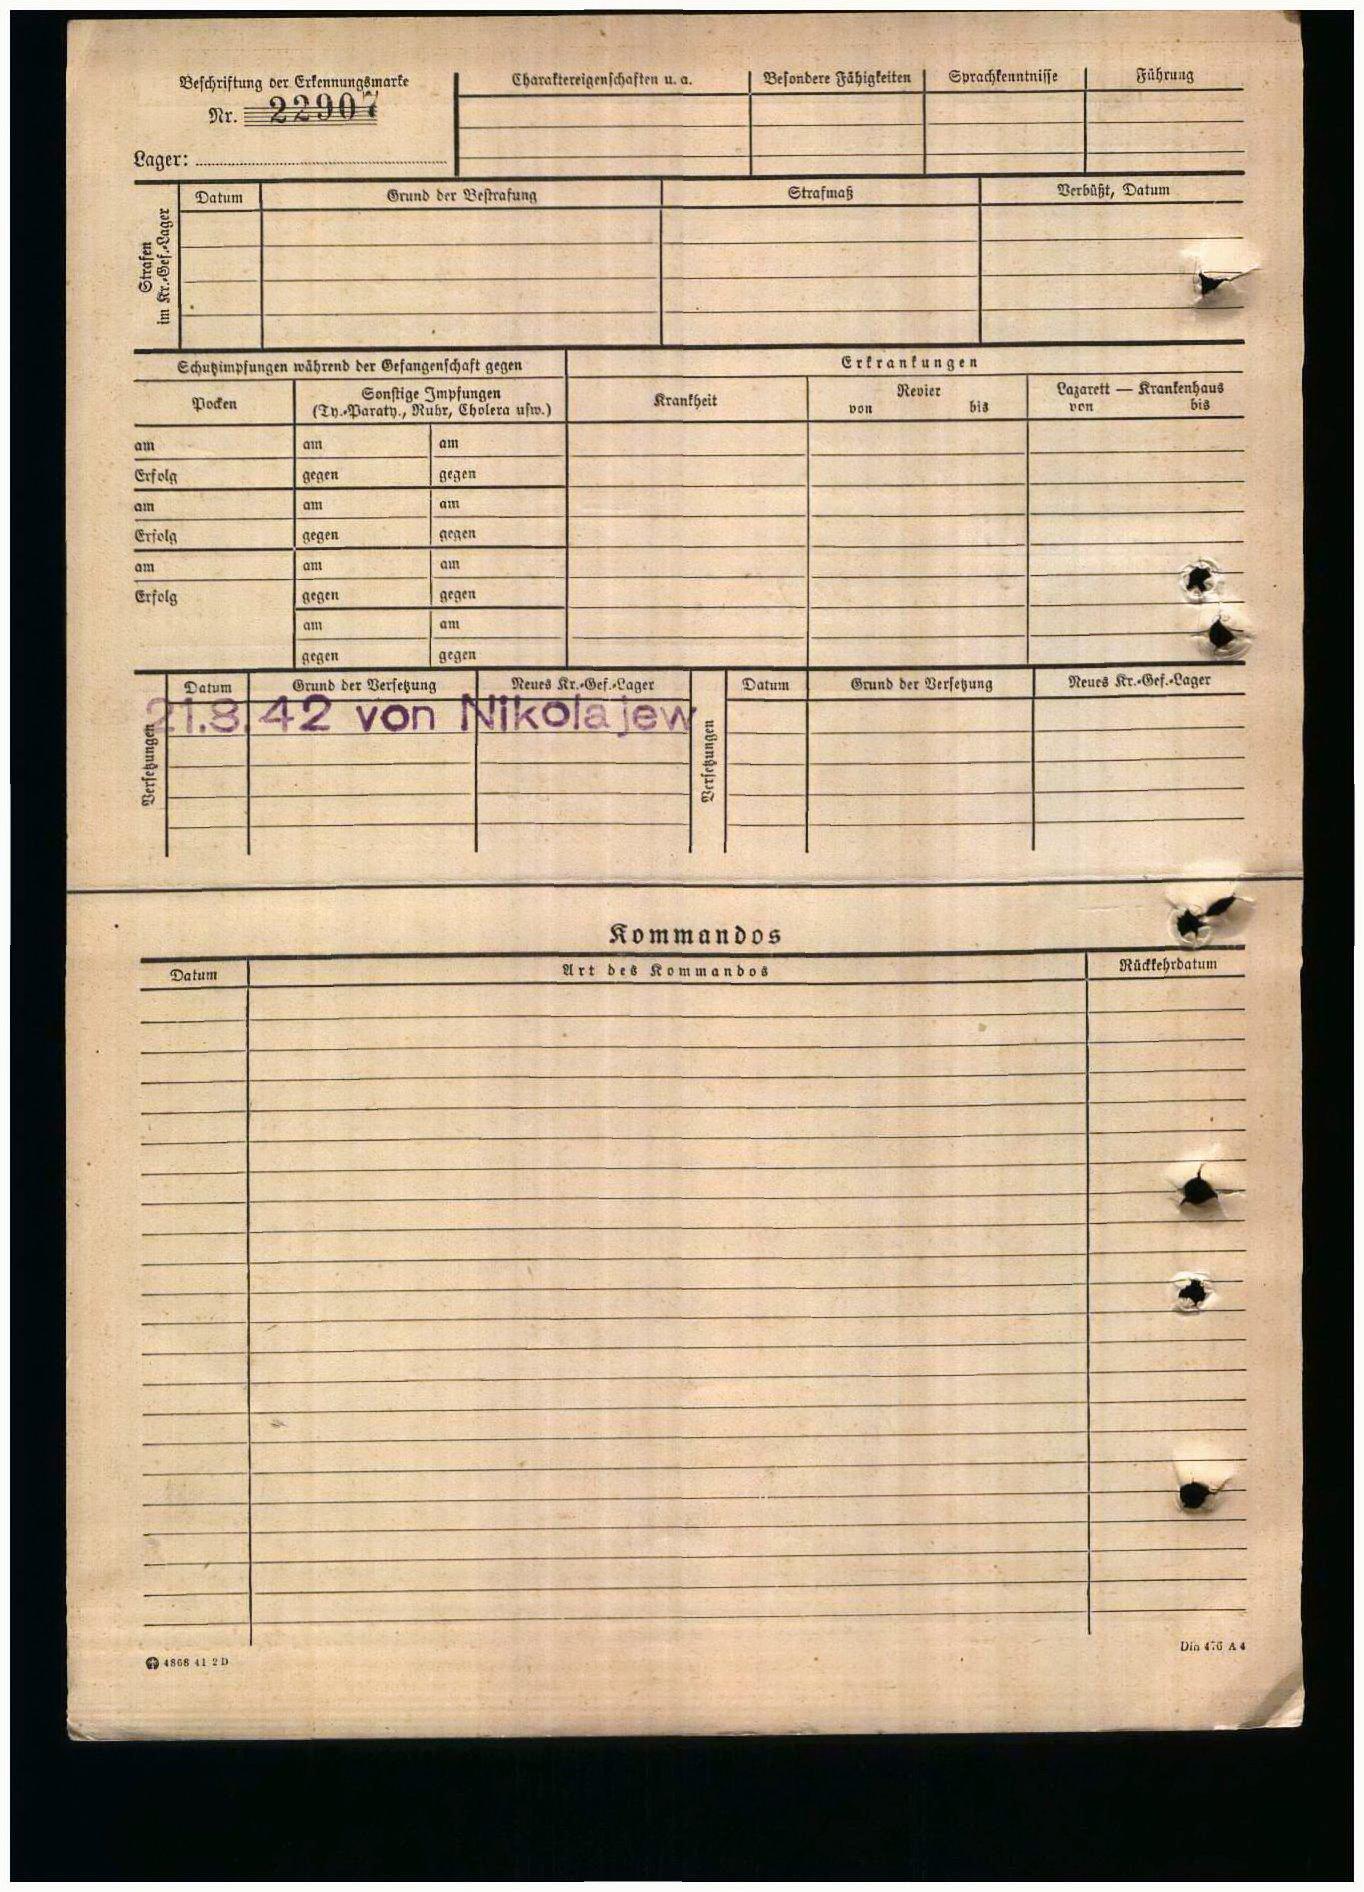 Beschriftung der Erkennungsmarke
Nr. 22907
Lager:
Charaktereigenschaften u. a. Besondere Fähigkeiten Sprachkenntnisse Führung
Strafen im Kr.-Gef.-Lager
Datum Grund der Bestrafung Strafmaß Verbüßt, Datum
Schutzimpfungen während der Gefangenschaft gegen
Pocken
Sonstige Impfungen
(Ty.-Paraty., Ruhr, Cholera usw.)
am am am
Erfolg gegen gegen
am am am
Erfolg gegen gegen
am am am
Erfolg gegen gegen
am am
gegen gegen
Erkrankungen
Krankheit
Revier
von bis
Lazarett — Krankenhaus
von bis
Versetzungen
Datum Grund der Versetzung Neues Kr.-Gef.-Lager
21.8.42 von Nikolajew
Versetzungen
Datum Grund der Versetzung Neues Kr.-Gef.-Lager
Kommandos
Datum Art des Kommandos Rückkehrdatum
4868 41 2 D
Din 476 A 4